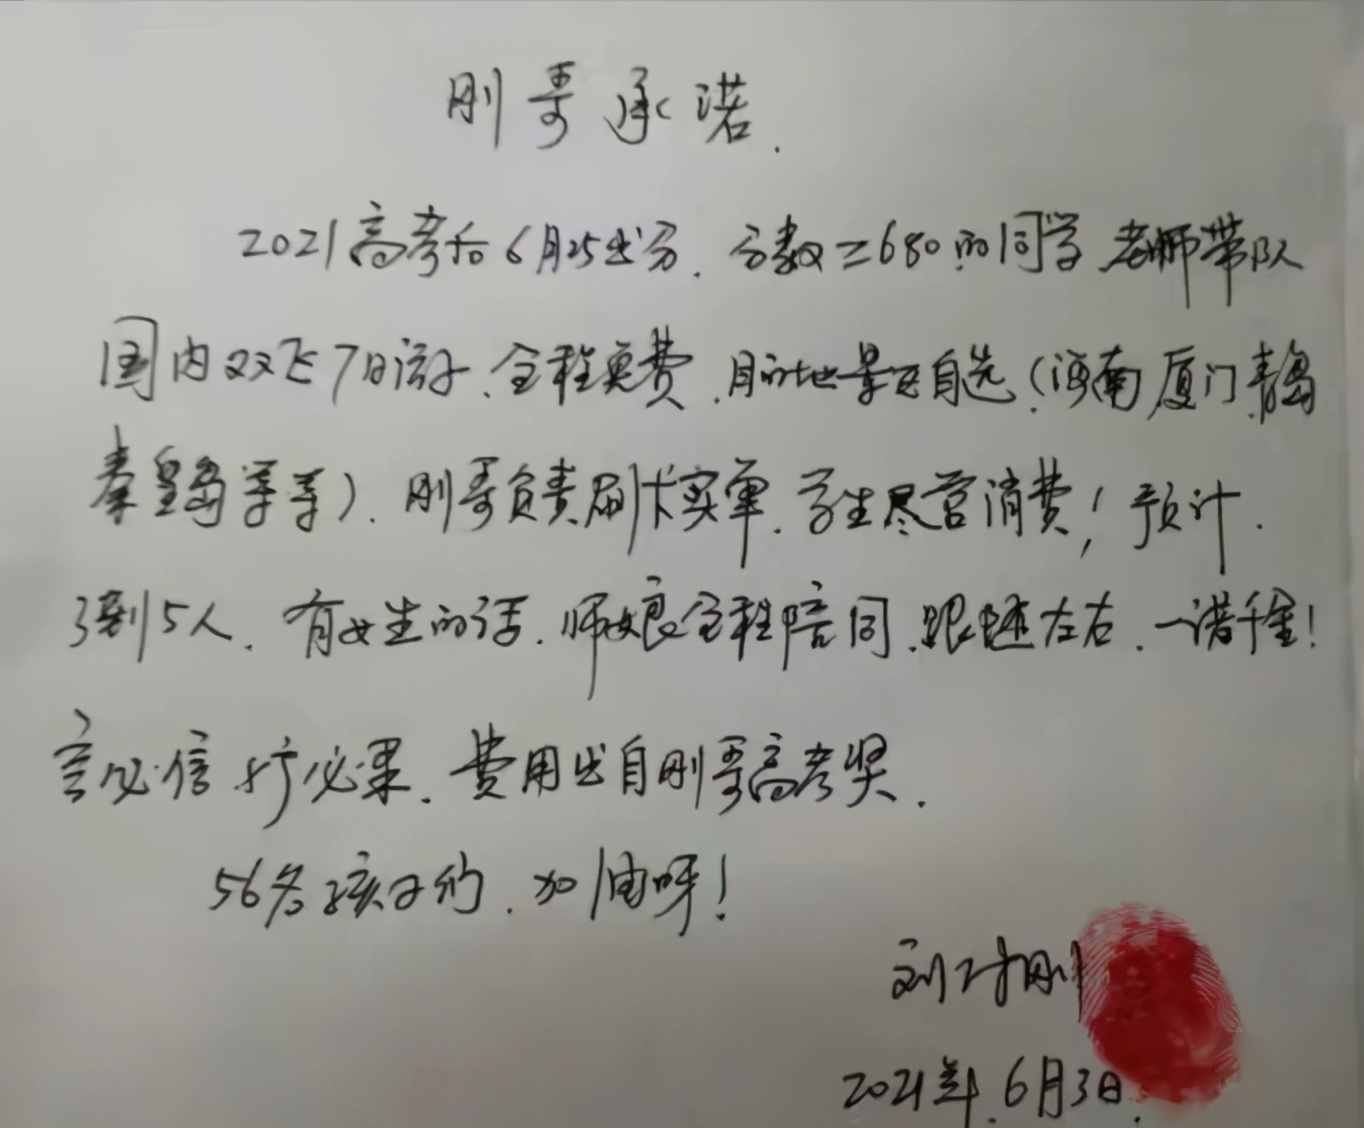 刚哥承诺.
2021高考后6月25出分.分数≥680的同学老师带队
国内双飞7日游.全程免费.目的地景区自选(海南,厦门,青岛
秦皇岛等等).刚哥负责刷卡买单.学生尽管消费!预计.
3到5人.有女生的话.师娘全程陪同.跟随左右.一诺千金!
言必信行必果.费用出自刚哥高考奖.
56名孩子们.加油呀!
刘 刚
2021年.6月3日.